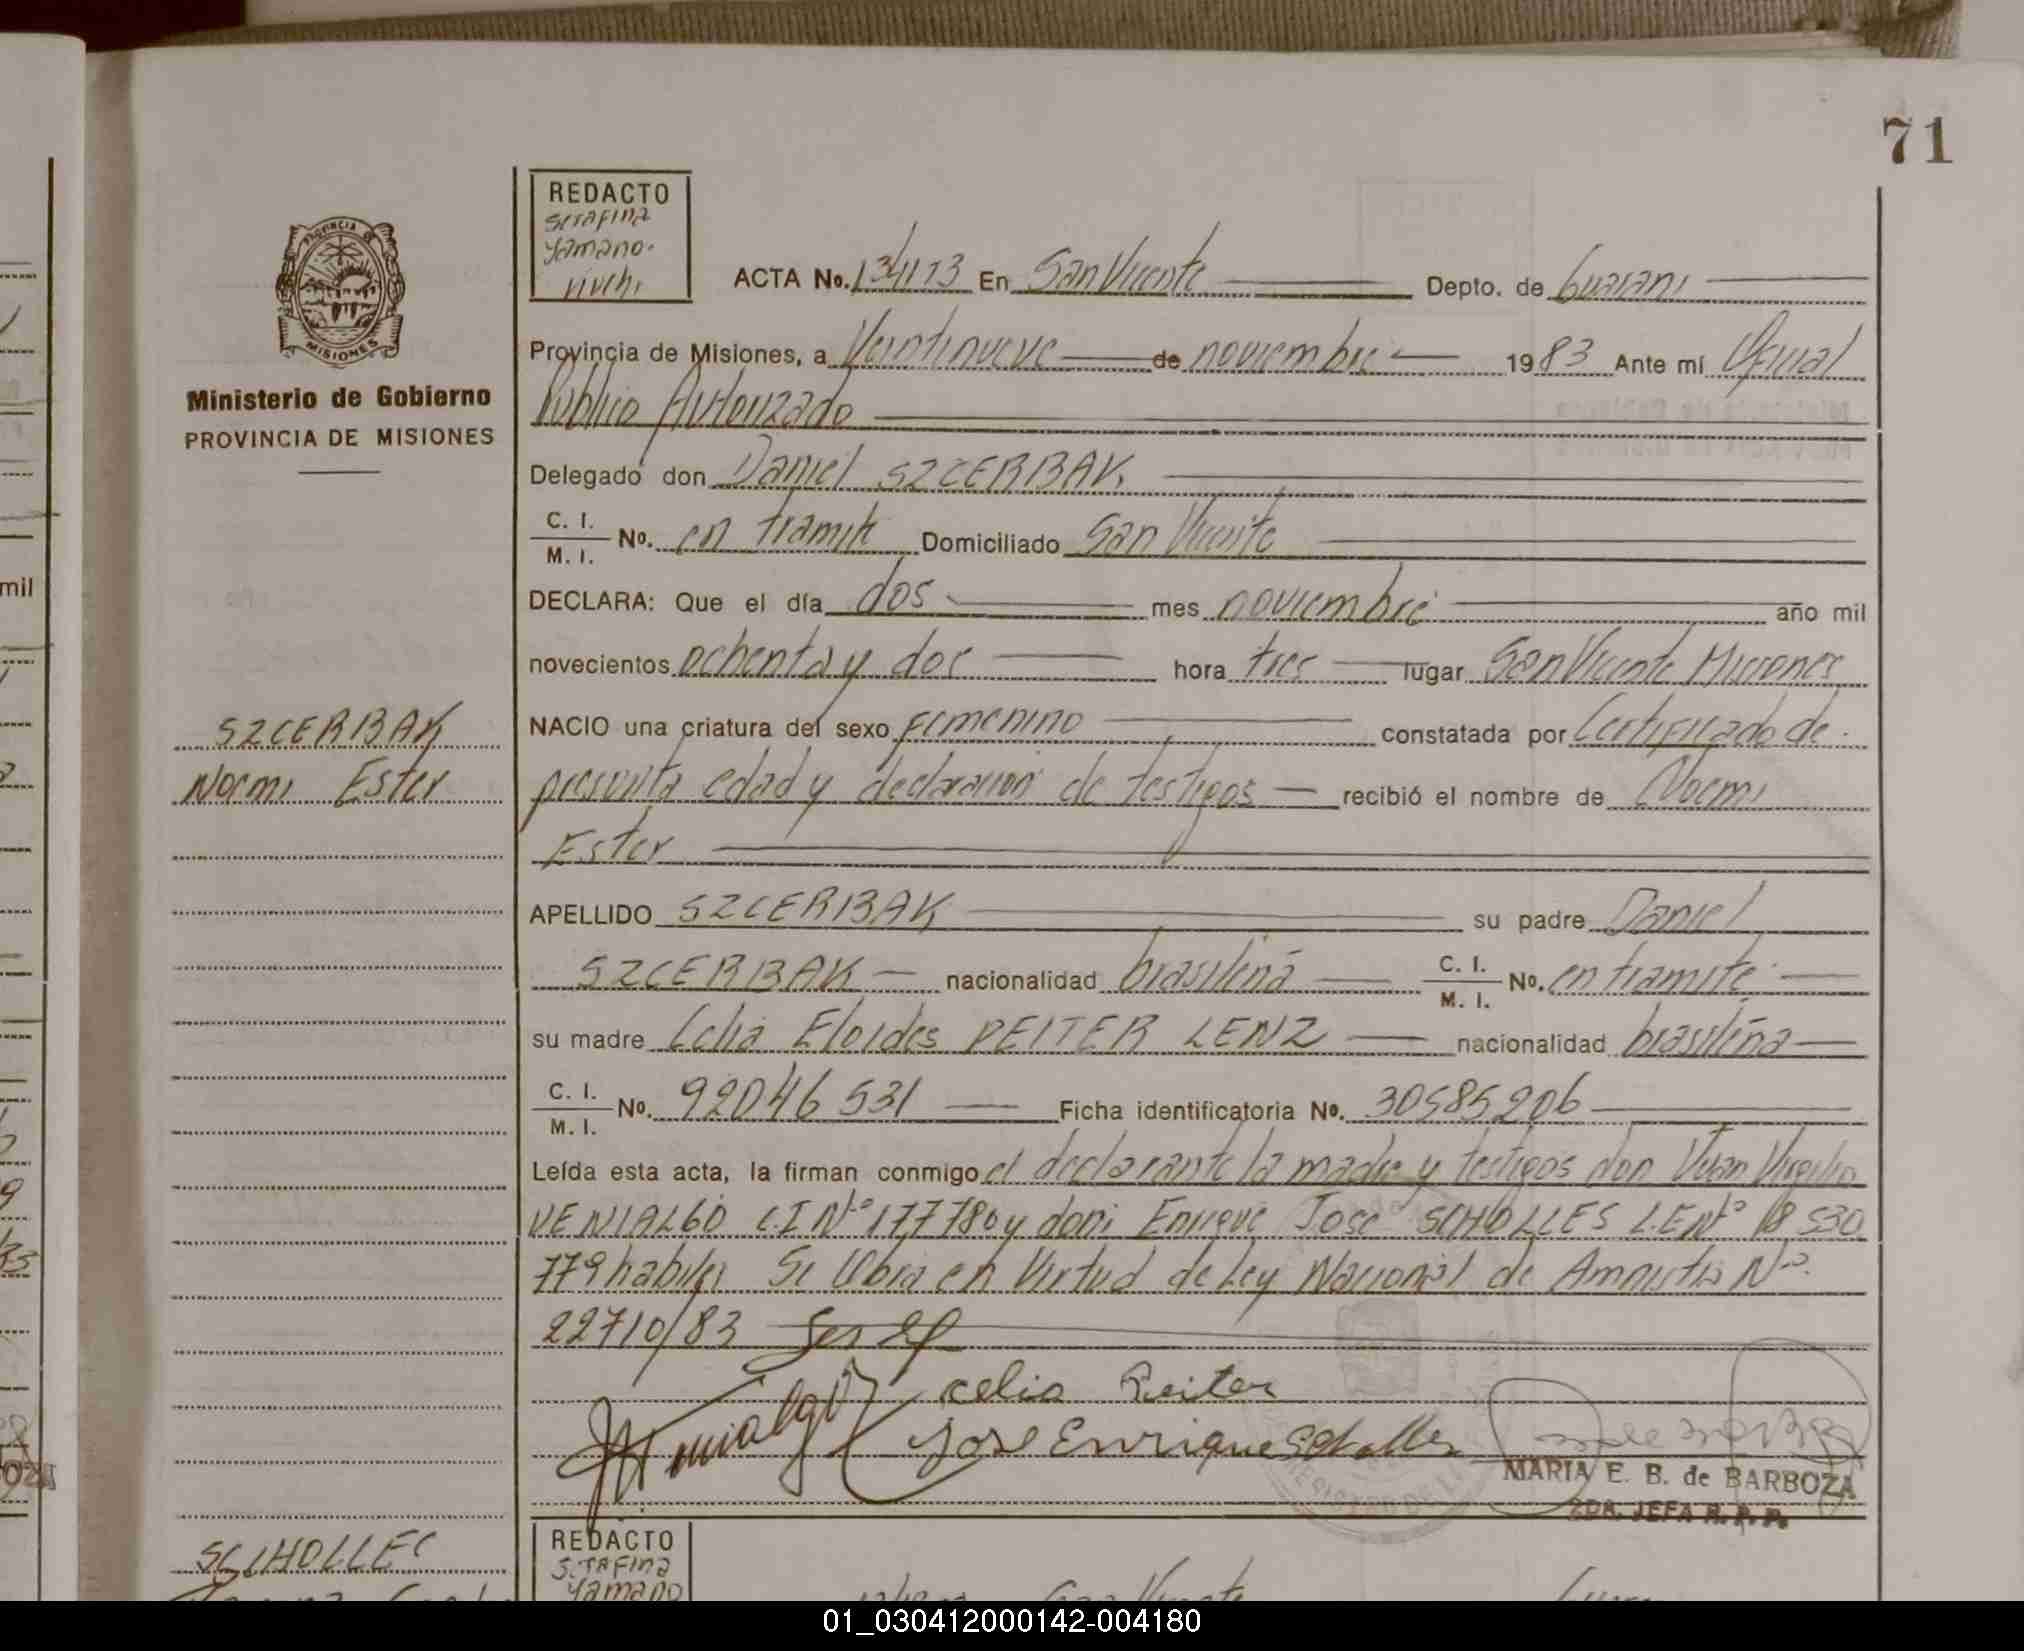 71
REDACTO
Serafina
Yamano.
PROVINCIA DE
MISIONES
Ministerio de Gobierno
PROVINCIA DE MISIONES
ACTA No. En San Vicente Depto. de Guarani
Provincia de Misiones, a Veintinueve de noviembre 1983 Ante mí Oficial
Publico Autorizado
Delegado don Daniel SZCERBAK
C. I.
M. I. No. en tramite Domiciliado San Vicente
DECLARA: Que el día dos mes noviembre año mil
novecientos ochenta y dos hora tres lugar San Vicente Misiones
NACIO una criatura del sexo Femenino constatada por Certificado de
presunta edad y declaracion de testigos recibió el nombre de Noemi
Ester
SZCERBAK
Noemi Ester
APELLIDO SZCERBAK su padre Daniel
SZCERBAK nacionalidad brasileña C. I.
M. I. No. en tramite
su madre Celia Eloides REITER LENZ nacionalidad brasileña
C. I.
M. I. No. 92046531 Ficha identificatoria No. 30585206
Leída esta acta, la firman conmigo el declarante la madre y testigos don Juan Virgilio
VENIALGO C.I Nº 177780 y don Enrique José SCHOLLES L.E Nº 18 530
779 habiles Se labra en Virtud de Ley Nacional de Amnistia Nº
22710/83
Celia Reiter
Jose Enrique Scholles
MARIA E. B. de BARBOZA
2DA. JEFA R. P. P.
SCHOLLES
REDACTO
Serafina
Yamano
01_030412000142-004180